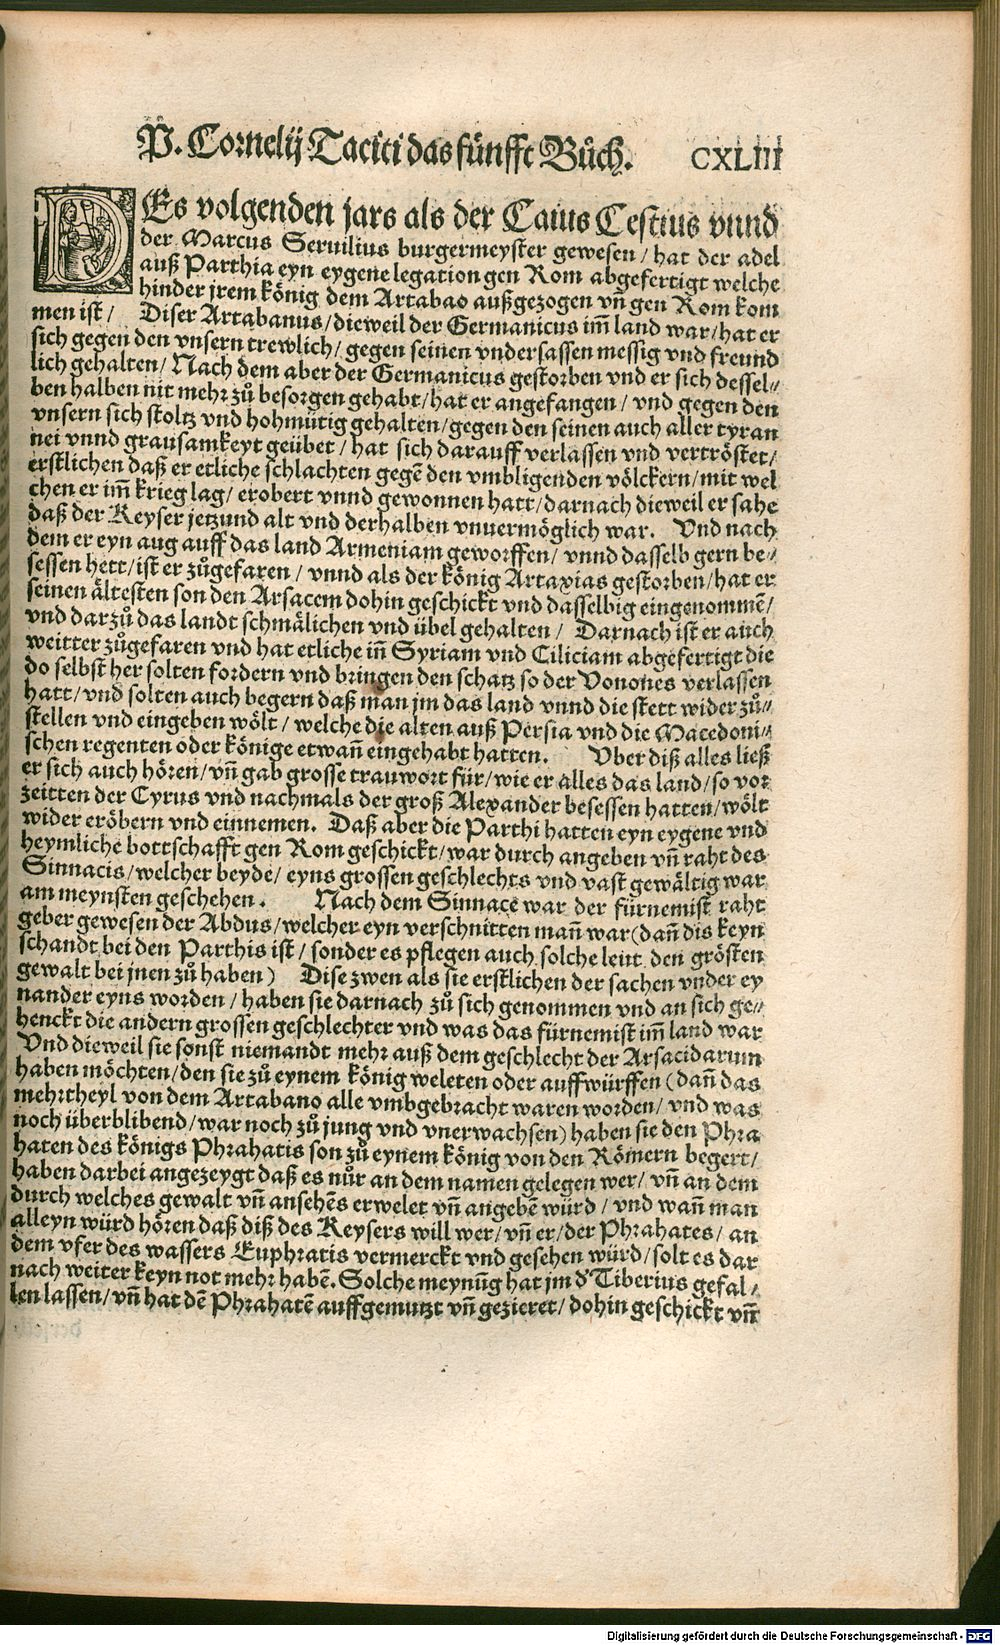 P. Cornelij Taciti das fünfft Bůch. CXLIII
DEs volgenden jars als der Caius Cestius vnnd
der Marcus Seruilius burgermeyster gewesen / hat der adel
auß Parthia eyn eygene legation gen Rom abgefertigt welche
hinder jrem könig dem Artabao außgezogen vñ gen Rom kom
men ist / Diser Artabanus / dieweil der Germanicus im̃ land war / hat er
sich gegen den vnsern trewlich / gegen seinen vndersassen messig vnd freund
lich gehalten / Nach dem aber der Germanicus gestorben vnd er sich dessel⸗
ben halben nit mehr zů besorgen gehabt / hat er angefangen / vnd gegen den
vnsern sich stoltz vnd hohmütig gehalten / gegen den seinen auch aller tyran
nei vnnd grausamkeyt geübet / hat sich darauff verlassen vnd vertröstet /
erstlichen daß er etliche schlachten gegē den vmbligenden völckern / mit wel
chen er im̃ krieg lag / erobert vnnd gewonnen hatt / darnach dieweil er sahe
daß der Keyser jetzund alt vnd derhalben vnuermöglich war. Vnd nach
dem er eyn aug auff das land Armeniam geworffen / vnnd dasselb gern be⸗
sessen hett / ist er zůgefaren / vnnd als der könig Artaxias gestorben / hat er
seinen ältesten son den Arsacem dohin geschickt vnd dasselbig eingenommē /
vnd darzů das landt schmälichen vnd übel gehalten / Darnach ist er auch
weitter zůgefaren vnd hat etliche iñ Syriam vnd Ciliciam abgefertigt die
do selbst her solten fordern vnd bringen den schatz so der Vonones verlassen
hatt / vnd solten auch begern daß man jm das land vnnd die stett wider zů⸗
stellen vnd eingeben wölt / welche die alten auß Persia vnd die Macedoni⸗
schen regenten oder könige etwañ eingehabt hatten. Vber diß alles ließ
er sich auch hören / vñ gab grosse trauwort für / wie er alles das land / so vor
zeitten der Cyrus vnd nachmals der groß Alexander besessen hatten / wölt
wider eröbern vnd einnemen. Daß aber die Parthi hatten eyn eygene vnd
heymliche bottschafft gen Rom geschickt / war durch angeben vñ raht des
Sinnacis / welcher beyde / eyns grossen geschlechts vnd vast gewältig war
am meynsten geschehen. Nach dem Sinnace war der fürnemist raht
geber gewesen der Abdus / welcher eyn verschnitten mañ war (dañ dis keyn
schandt bei den Parthis ist / sonder es pflegen auch solche leut den grösten
gewalt bei jnen zů haben) Dise zwen als sie erstlichen der sachen vnder ey
nander eyns worden / haben sie darnach zů sich genommen vnd an sich ge⸗
henckt die andern grossen geschlechter vnd was das fürnemist im̃ land war
Vnd dieweil sie sonst niemandt mehr auß dem geschlecht der Arsacidarum
haben möchten / den sie zů eynem könig weleten oder auffwürffen (dañ das
mehrtheyl von dem Artabano alle vmbgebracht waren worden / vnd was
noch überblibend / war noch zů jung vnd vnerwachsen) haben sie den Phra
haten des königs Phrahatis son zů eynem könig von den Römern begert /
haben darbei angezeygt daß es nůr an dem namen gelegen wer / vñ an dem
durch welches gewalt vñ ansehēs erwelet vñ angebē würd / vnd wañ man
alleyn würd hören daß diß des Keysers will wer / vñ er / der Phrahates / an
dem vfer des wassers Euphratis vermerckt vnd gesehen würd / solt es dar
nach weiter keyn not mehr habē. Solche meynūg hat jm d' Tiberius gefal⸗
len lassen / vñ hat dē Phrahatē auffgemutzt vñ gezieret / dohin geschickt vñ
Digitalisierung gefördert durch die Deutsche Forschungsgemeinschaft - DFG